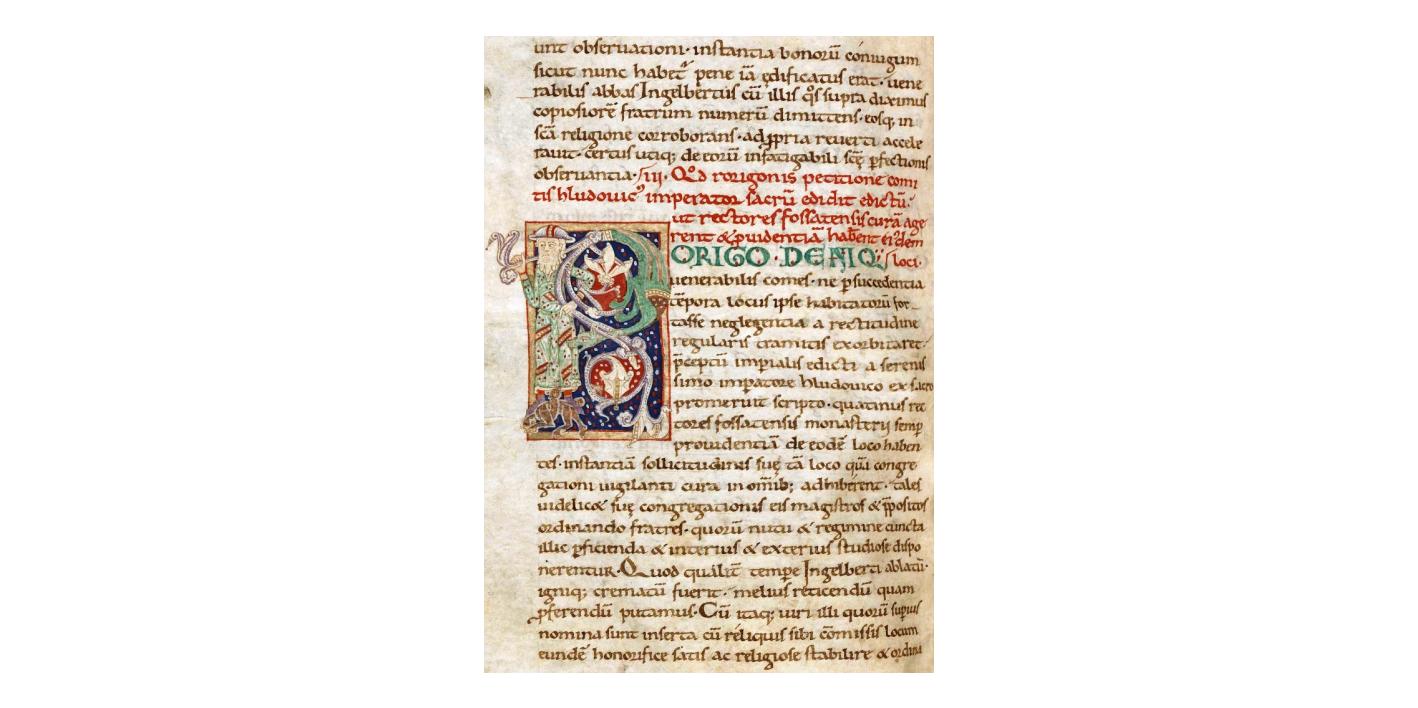 unt obseruationi· instantia bonorū coniugum
sicut nunc habet᷑ pene iā ędificatus erat· uene
rabilis abbas Ingelbertus cū illis q̊s supra diximus
copiosiorē fratrum numerū dimittens· eosq; in
scā religione corroborans· ad ꝓpria reuerti accele
rauit· certus utiq; de eorū infatigabili scę ꝑfectionis
obseruantia· iii· Qd̊ rorigonis petitione comi
tis hludouicꝰ imperator sacrū edidit edictū·
ut rectores fossatensis curā age
rent & ꝓuidentiā habent ei᷒dem
loci·
RORIGO· DENIQ;
uenerabilis comes· ne ꝑ succedentia
tēpora locus ipse habitatorū for
tasse neglegentia a rectitudine
regularis tramitis exorbitaret·
p̄ceptū imꝑialis edicti a serenis
simo imꝑatore hludouico ex sacro
promeruit scripto· quatinus rec
tores fossatensis monasterij semꝑ
prouidentiā de eodē loco haben
tes· instantiā sollicitudinis suę tā loco quā congre
gationi uigilanti cura in om̄ib; adhiberent· tales
uidelicet suę congregationis eis magistros & p̄positos
ordinando fratres· quorū nutu & regimine cuncta
illic ꝑficienda & interius & exterius studiose dispo
nerentur· Quod qualit̄ tempore Ingelberti ablatū·
igniq; crematū fuerit· melius reticendū quam
ꝓferendū putamus· Cū itaq; uiri illi quorū supius
nomina sunt inserta cū reliquis sibi cōmissis locum
eundē honorifice satis ac religiose stabilire & ordina